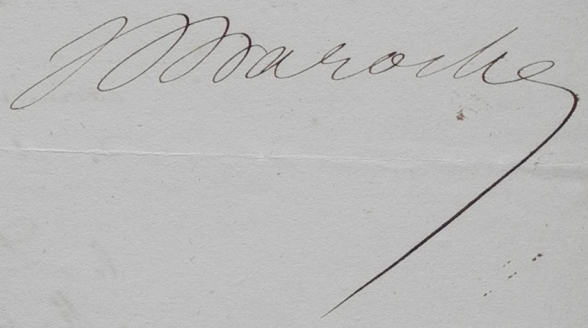 J Baroche